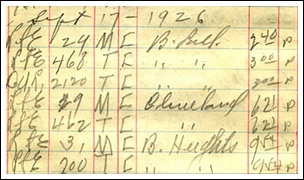 Sept 17-1926
RfE 29 M E B. Gulf. 240 P
RfE 468 T E " " 300 P
2120 T E " "
RfE 29 M E Cleveland 621 P
RfE 462 T E " " 622 P
RfE 31 M E B. Heights 954 P
RfE 200 T E " " 954 P